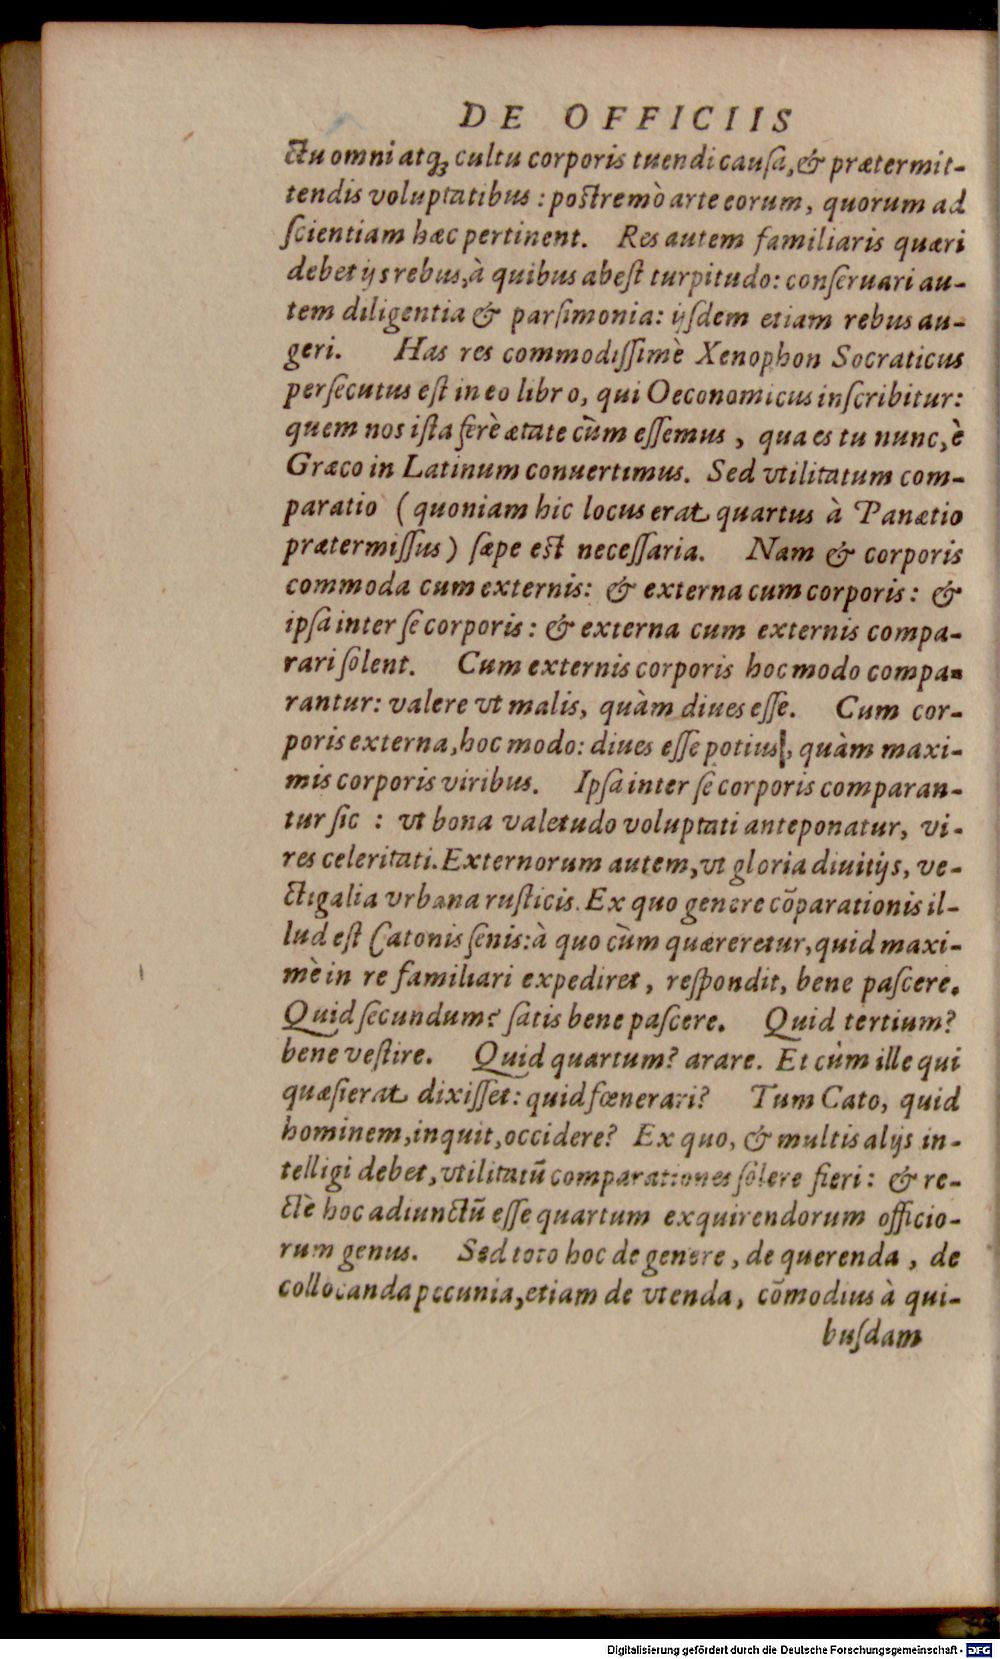 DE OFFICIIS
ctu omni atq; cultu corporis tuendi causa, & prætermit-
tendis voluptatibus: postremò arte eorum, quorum ad
scientiam hæc pertinent. Res autem familiaris quæri
debet ijs rebus, à quibus abest turpitudo: conseruari au-
tem diligentia & parsimonia: ijsdem etiam rebus au-
geri. Has res commodissimè Xenophon Socraticus
persecutus est in eo libro, qui Oeconomicus inscribitur:
quem nos ista ferè ætate cùm essemus, qua es tu nunc, è
Græco in Latinum conuertimus. Sed vtilitatum com-
paratio (quoniam hic locus erat quartus à Panætio
prætermissus) sæpe est necessaria. Nam & corporis
commoda cum externis: & externa cum corporis: &
ipsa inter se corporis: & externa cum externis compa-
rari solent. Cum externis corporis hoc modo compa-
rantur: valere vt malis, quàm diues esse. Cum cor-
poris externa, hoc modo: diues esse potius, quàm maxi-
mis corporis viribus. Ipsa inter se corporis comparan-
tur sic : vt bona valetudo voluptati anteponatur, vi-
res celeritati. Externorum autem, vt gloria diuitijs, ve-
ctigalia vrbana rusticis. Ex quo genere cõparationis il-
lud est Catonis senis: à quo cùm quæreretur, quid maxi-
mè in re familiari expediret, respondit, bene pascere.
Quid secundum? satis bene pascere. Quid tertium?
bene vestire. Quid quartum? arare. Et cùm ille qui
quæsierat dixisset: quid fœnerari? Tum Cato, quid
hominem, inquit, occidere? Ex quo, & multis alijs in-
telligi debet, vtilitatũ comparationes solere fieri: & re-
ctè hoc adiunctũ esse quartum exquirendorum officio-
rum genus. Sed toto hoc de genere, de querenda, de
collocanda pecunia, etiam de vtenda, cõmodius à qui-
busdam
Digitalisierung gefördert durch die Deutsche Forschungsgemeinschaft - DFG